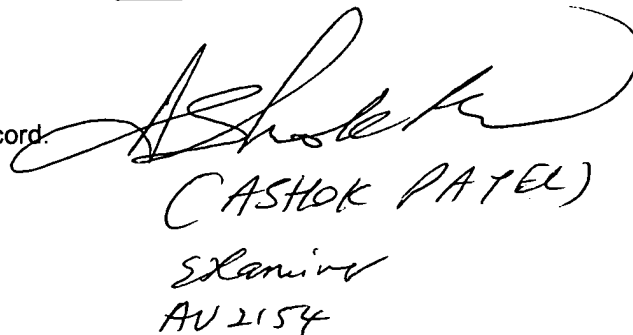 cord. Ashok
(ASHOK PATEL)
Examiner
AU 2154